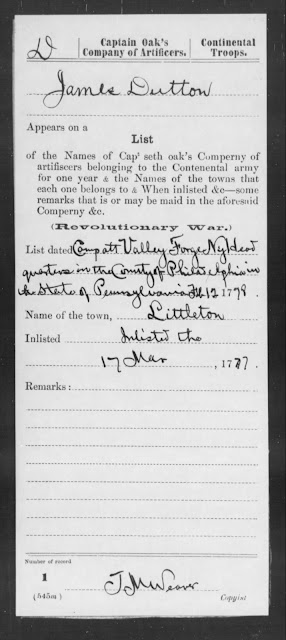 D
Captain Oak's
Company of Artificers.
Continental
Troops.
James Dutton
Appears on a
List
of the Names of Cap' seth oak's Comperny of
artifiscers belonging to the Contenental army
for one year & the Names of the towns that
each one belongs to & When inlisted &c—some
remarks that is or may be maid in the aforesoid
Comperny &c.
(Revolutionary War.)
List dated Campatt Valley Forge Ny Head
quarters in the County of Philadelphia in
the State of Pennsylvania Feb 12 1778.
Name of the town, Littleton
Inlisted Inlisted the
17 Mar , 1777.
Remarks:
Number of record
1
(545m)
J M Weaver
Copyist